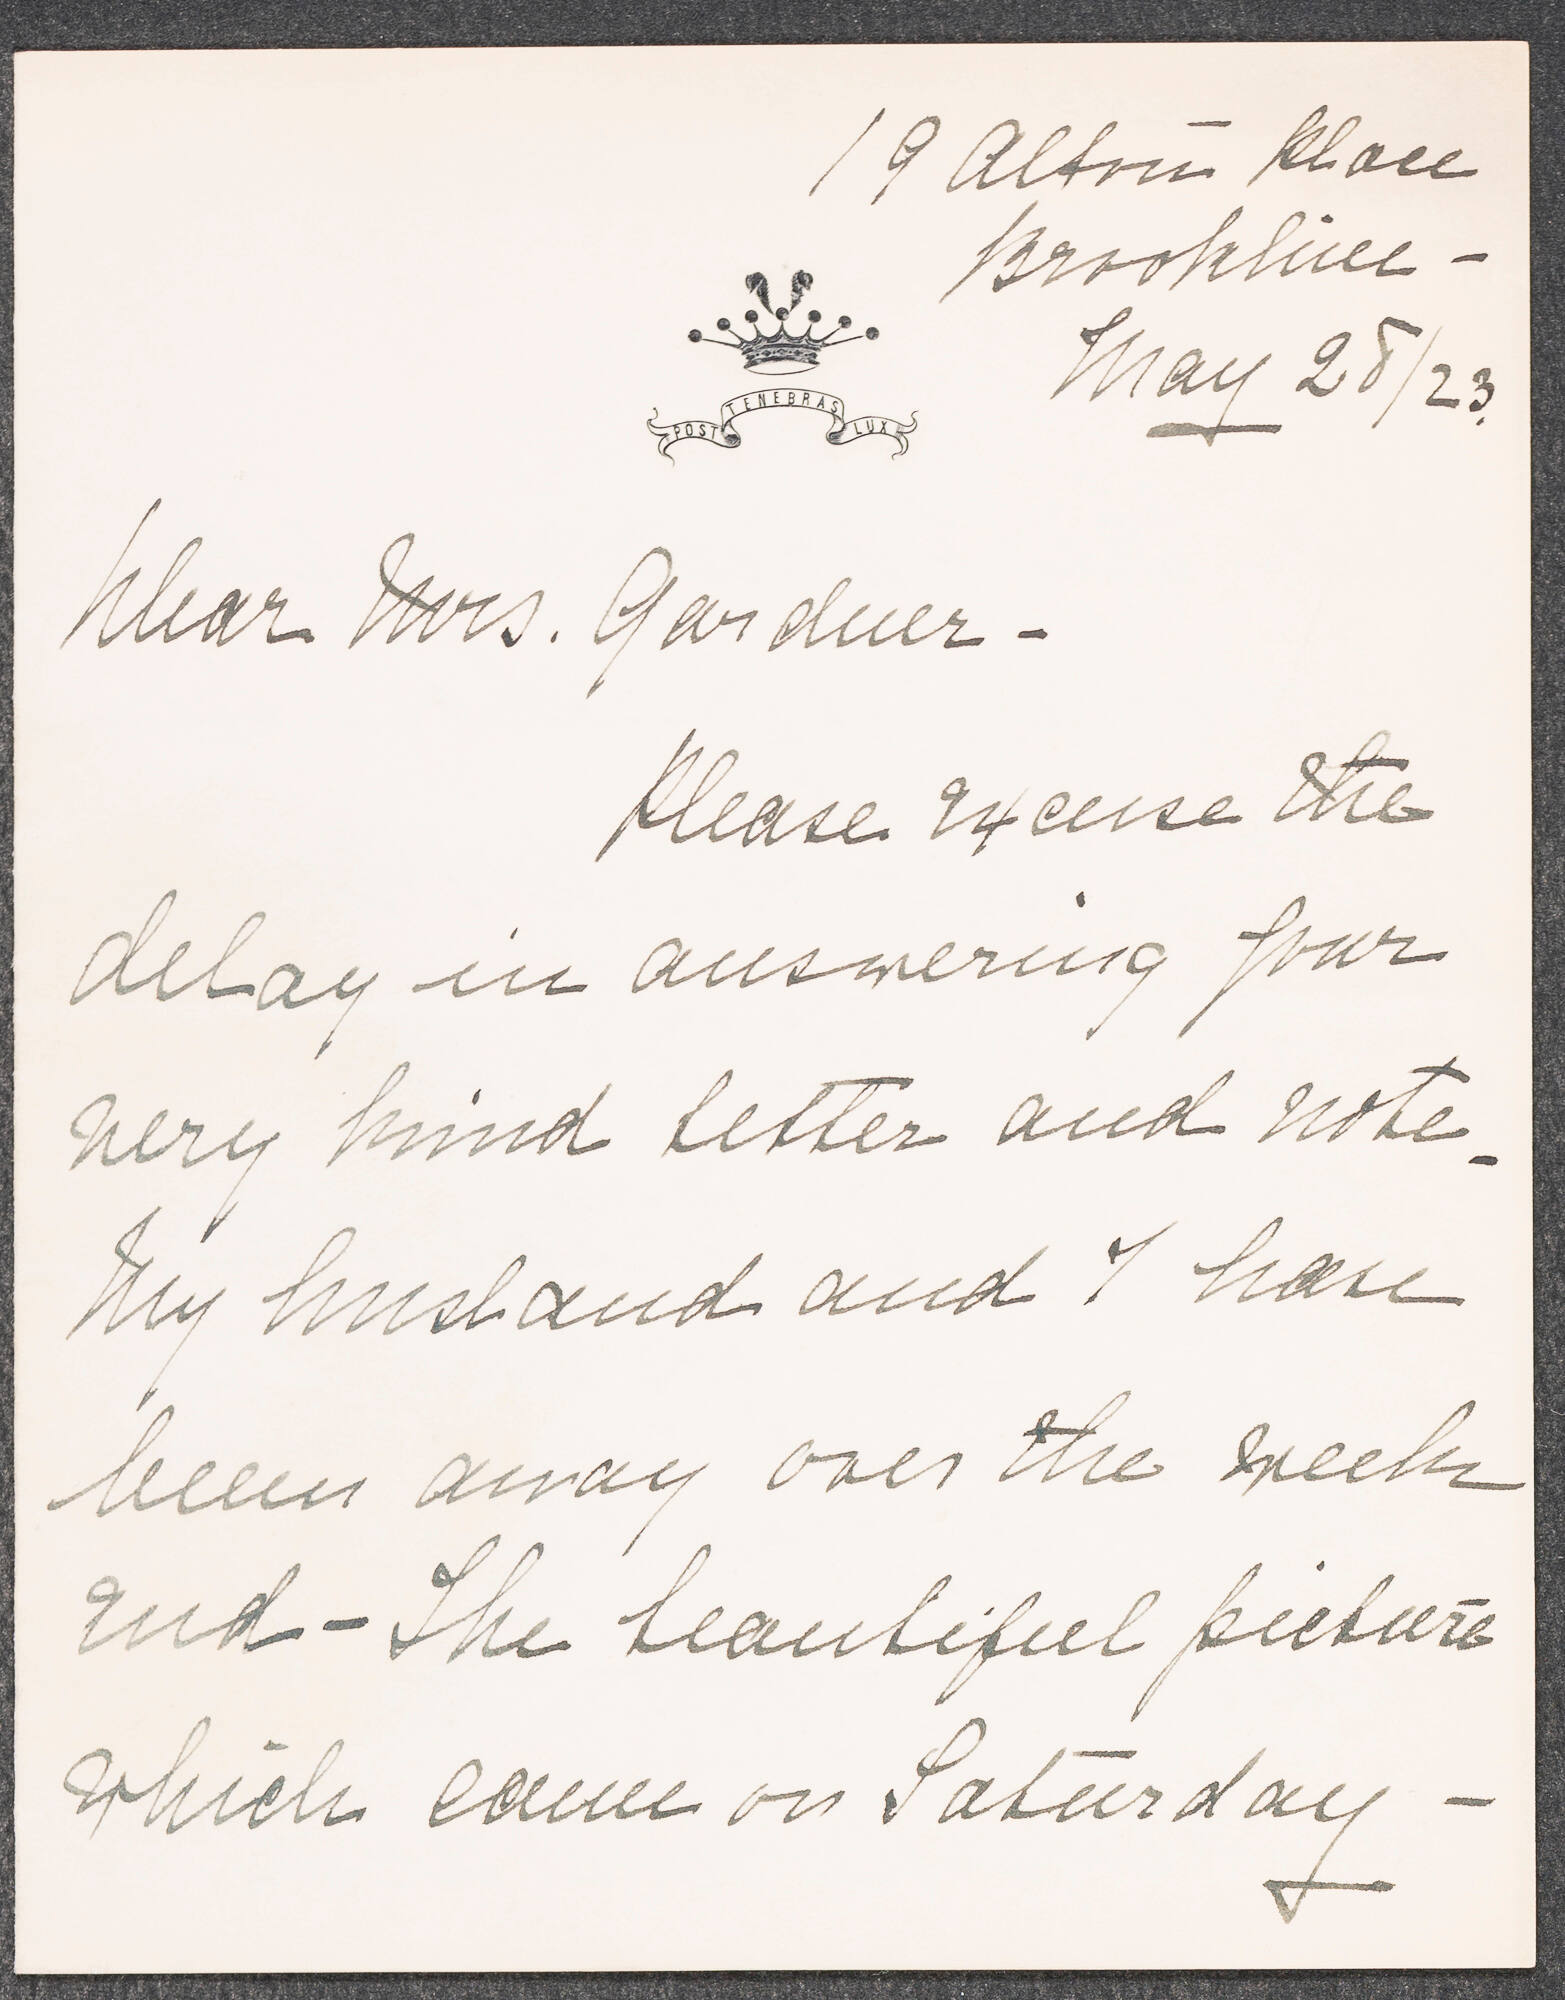 19 Alton Place
Brookline -
May 28/23.
POST TENEBRAS LUX
Dear Mrs. Gardner -
Please excuse the
delay in answering your
very kind letter and note -
My husband and I have
been away over the week
end - The beautiful picture
which came on Saturday -